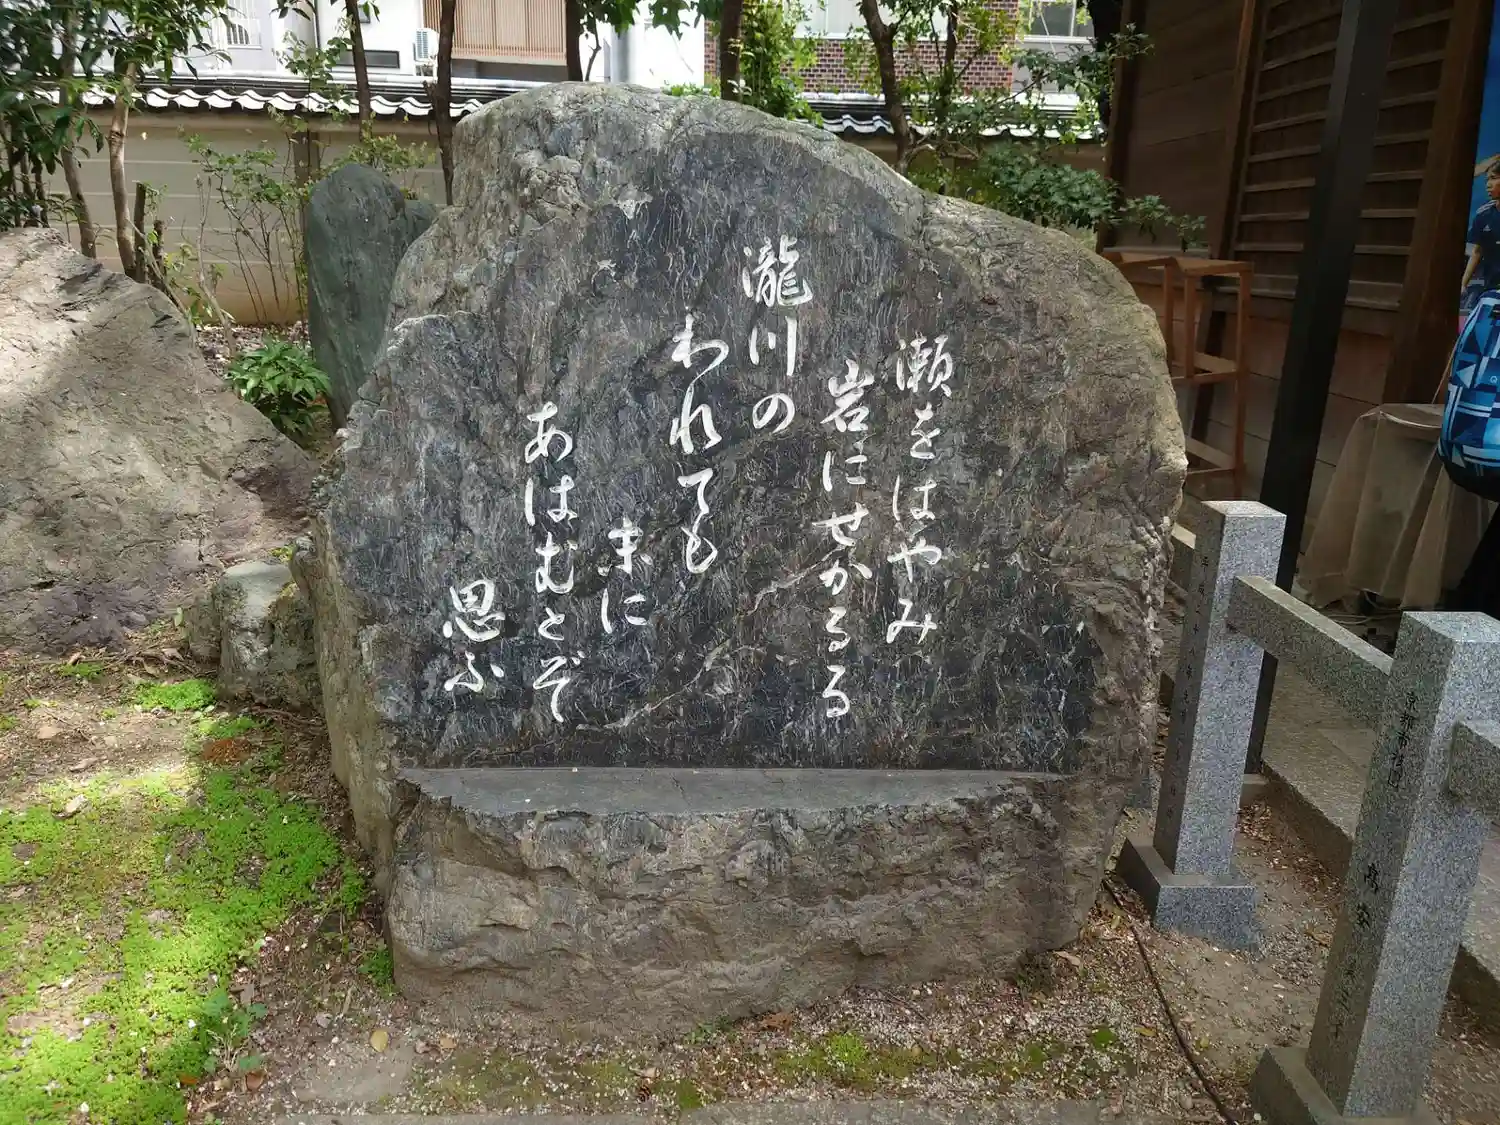 瀬をはやみ
岩にせかるる
瀧川の
われても
末に
あはむとぞ
思ふ
京都市